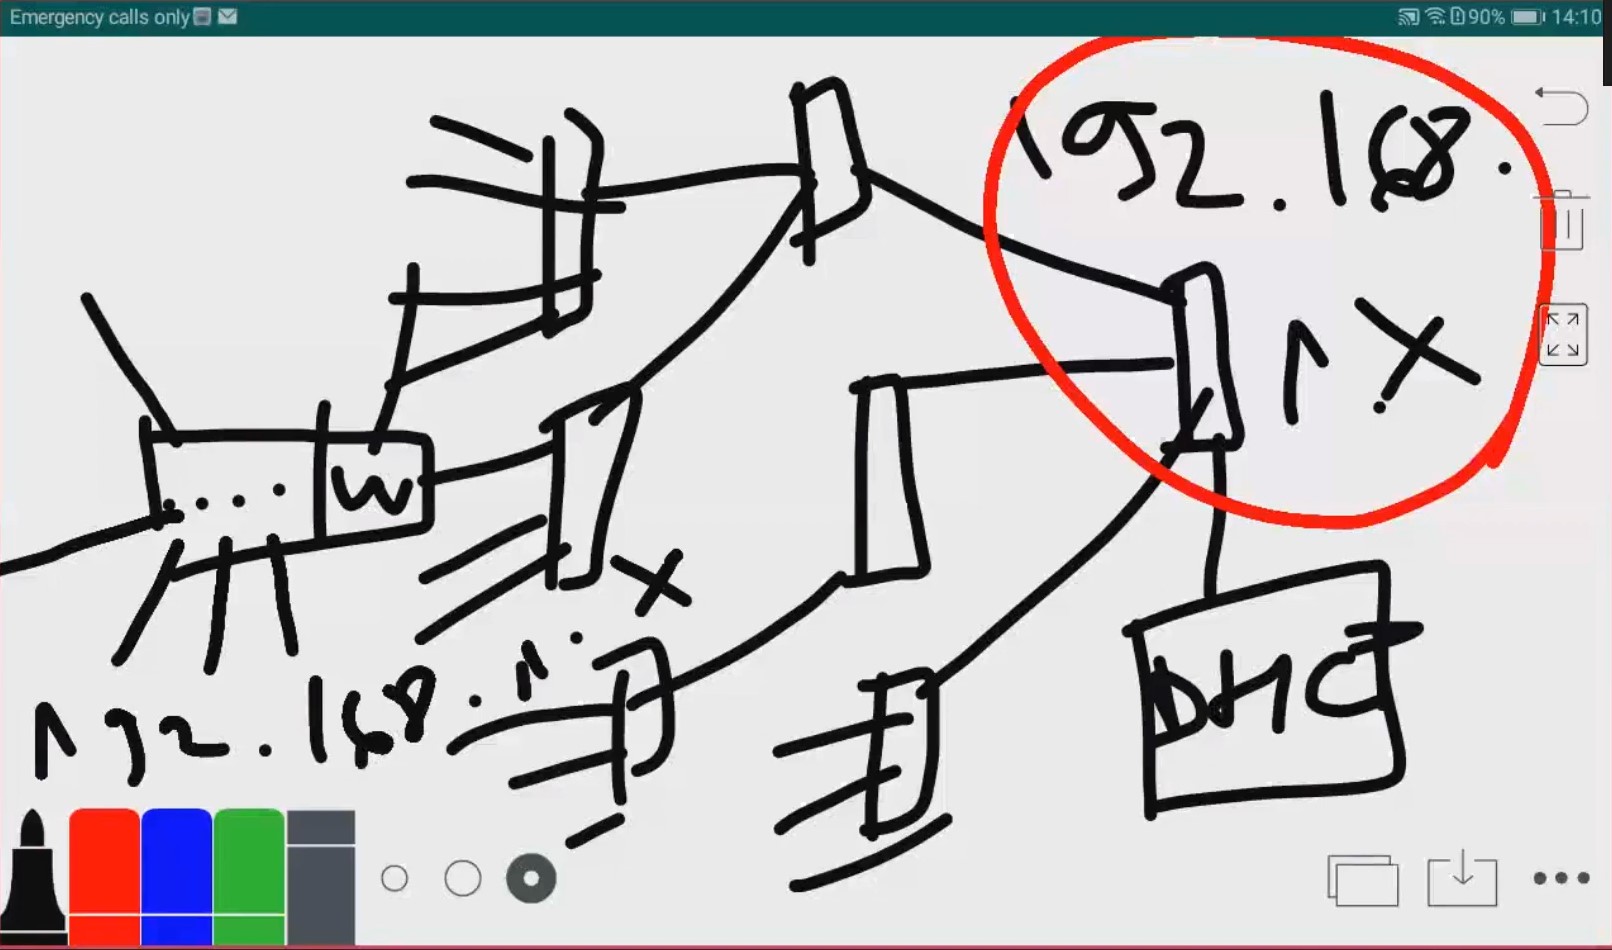 Emergency calls only
90% 14:10
192.168.
1.X
W
192.168.1.X
DHC